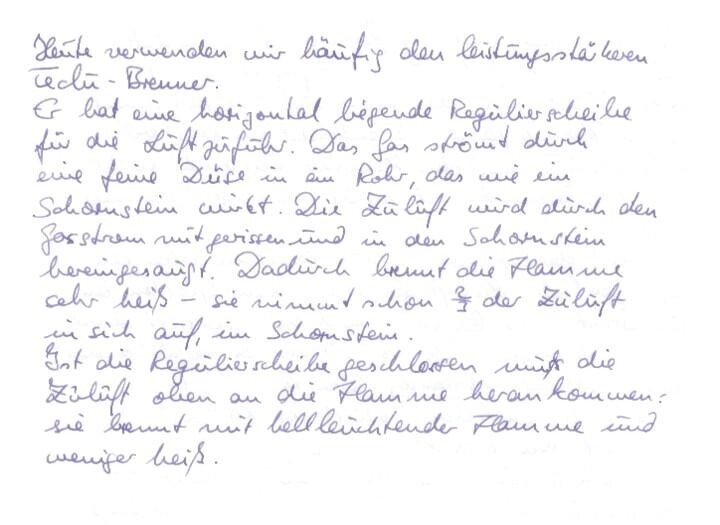 Heute verwenden wir häufig den leistungsstärkeren
Teclu-Brenner.
Er hat eine horizontal liegende Regulierscheibe
für die Luftzufuhr. Das Gas strömt durch
eine feine Düse in ein Rohr, das wie ein
Schornstein wirkt. Die Zuluft wird durch den
Gasstrom mitgerissen und in den Schornstein
hereingesaugt. Dadurch brennt die Flamme
sehr heiß – sie nimmt schon 2/3 der Zuluft
in sich auf, im Schornstein.
Ist die Regulierscheibe geschlossen muß die
Zuluft oben an die Flamme herankommen:
sie brennt mit hellleuchtender Flamme und
weniger heiß.